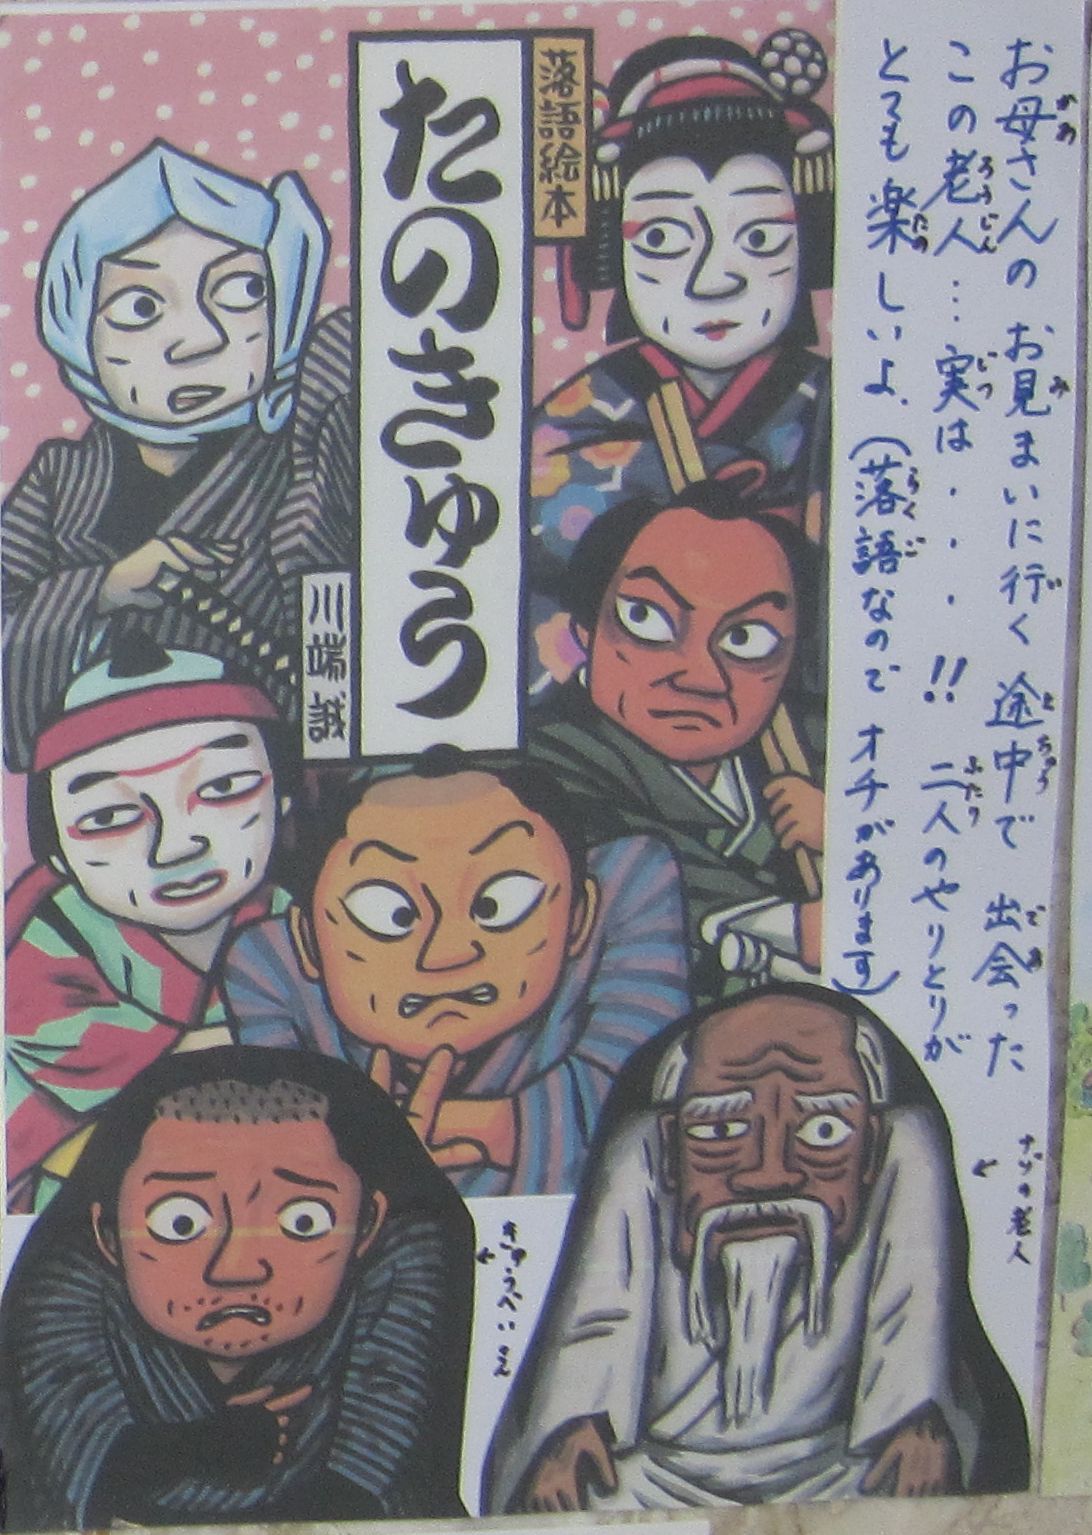 お母さんのお見まいに行く途中で出会った
この老人…実は・・・!! 二人のやりとりが
とても楽しいよ、(落語なのでオチがあります)
落語絵本
たのきゅう
川端誠
ナゾの老人